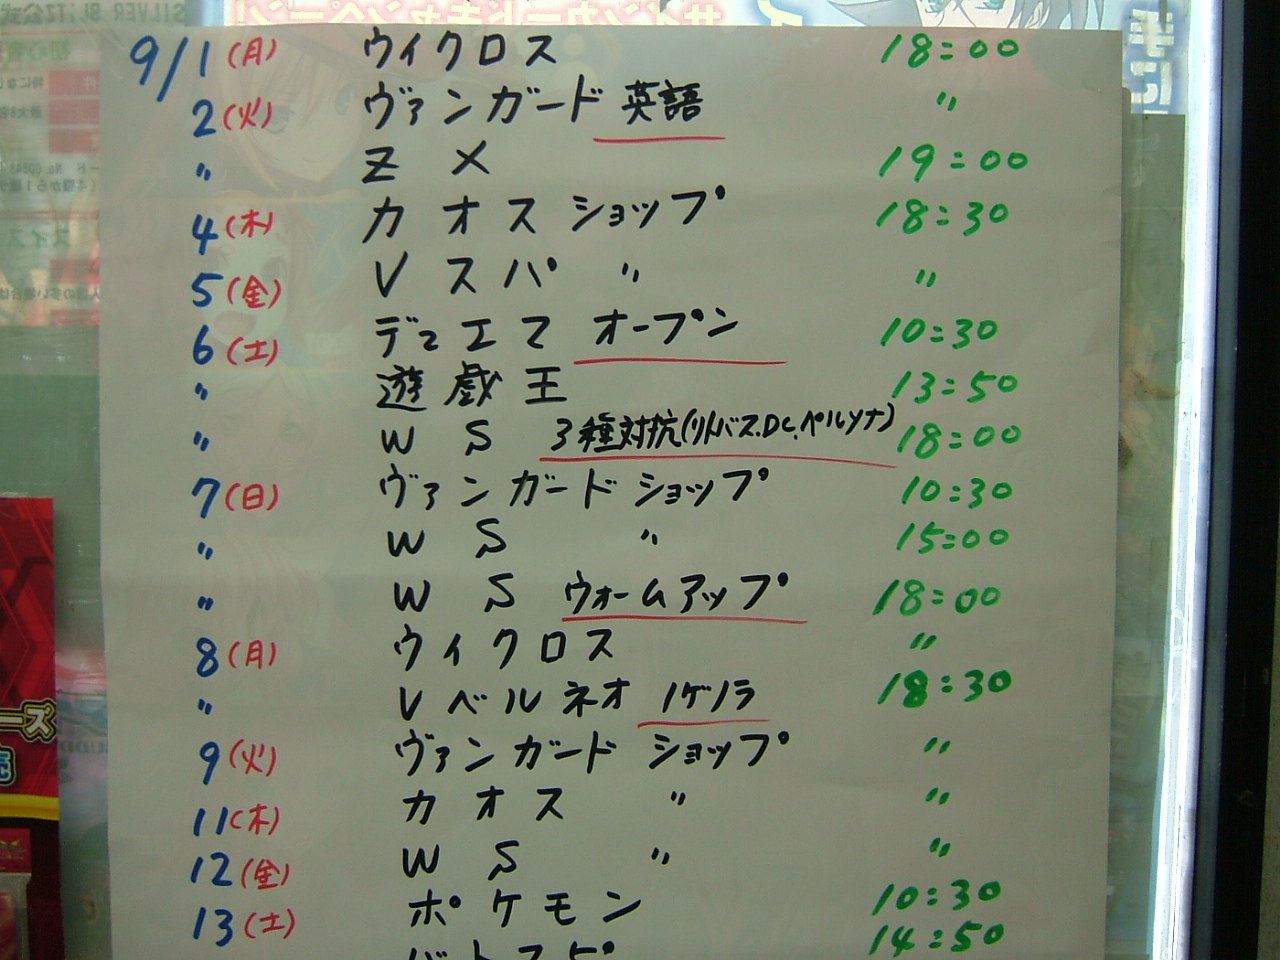 サインカードキャンペーン
9/1(月) ウィクロス 18:00
2(火) ヴァンガード 英語 〃
〃 Z X 19:00
4(木) カオス ショップ 18:30
5(金) Vスパ 〃 〃
6(土) デュエマ オープン 10:30
〃 遊戯王 13:50
〃 WS 3種対抗(リトバス.DC.ペルソナ) 18:00
7(日) ヴァンガード ショップ 10:30
〃 WS 〃 15:00
〃 WS ウォームアップ 18:00
8(月) ウィクロス 〃
〃 レベルネオ イゲノラ 18:30
9(火) ヴァンガード ショップ 〃
11(木) カオス 〃 〃
12(金) WS 〃 〃
13(土) ポケモン 10:30
バトスピ 14:50
ーズ
売